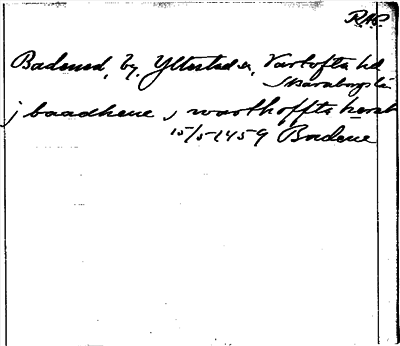 RAP.
Badened, by, Yllestad sn, Vartofta hd
Skaraborgs län
j baadhene j warthoffta hærat
15/5 1459 Badene